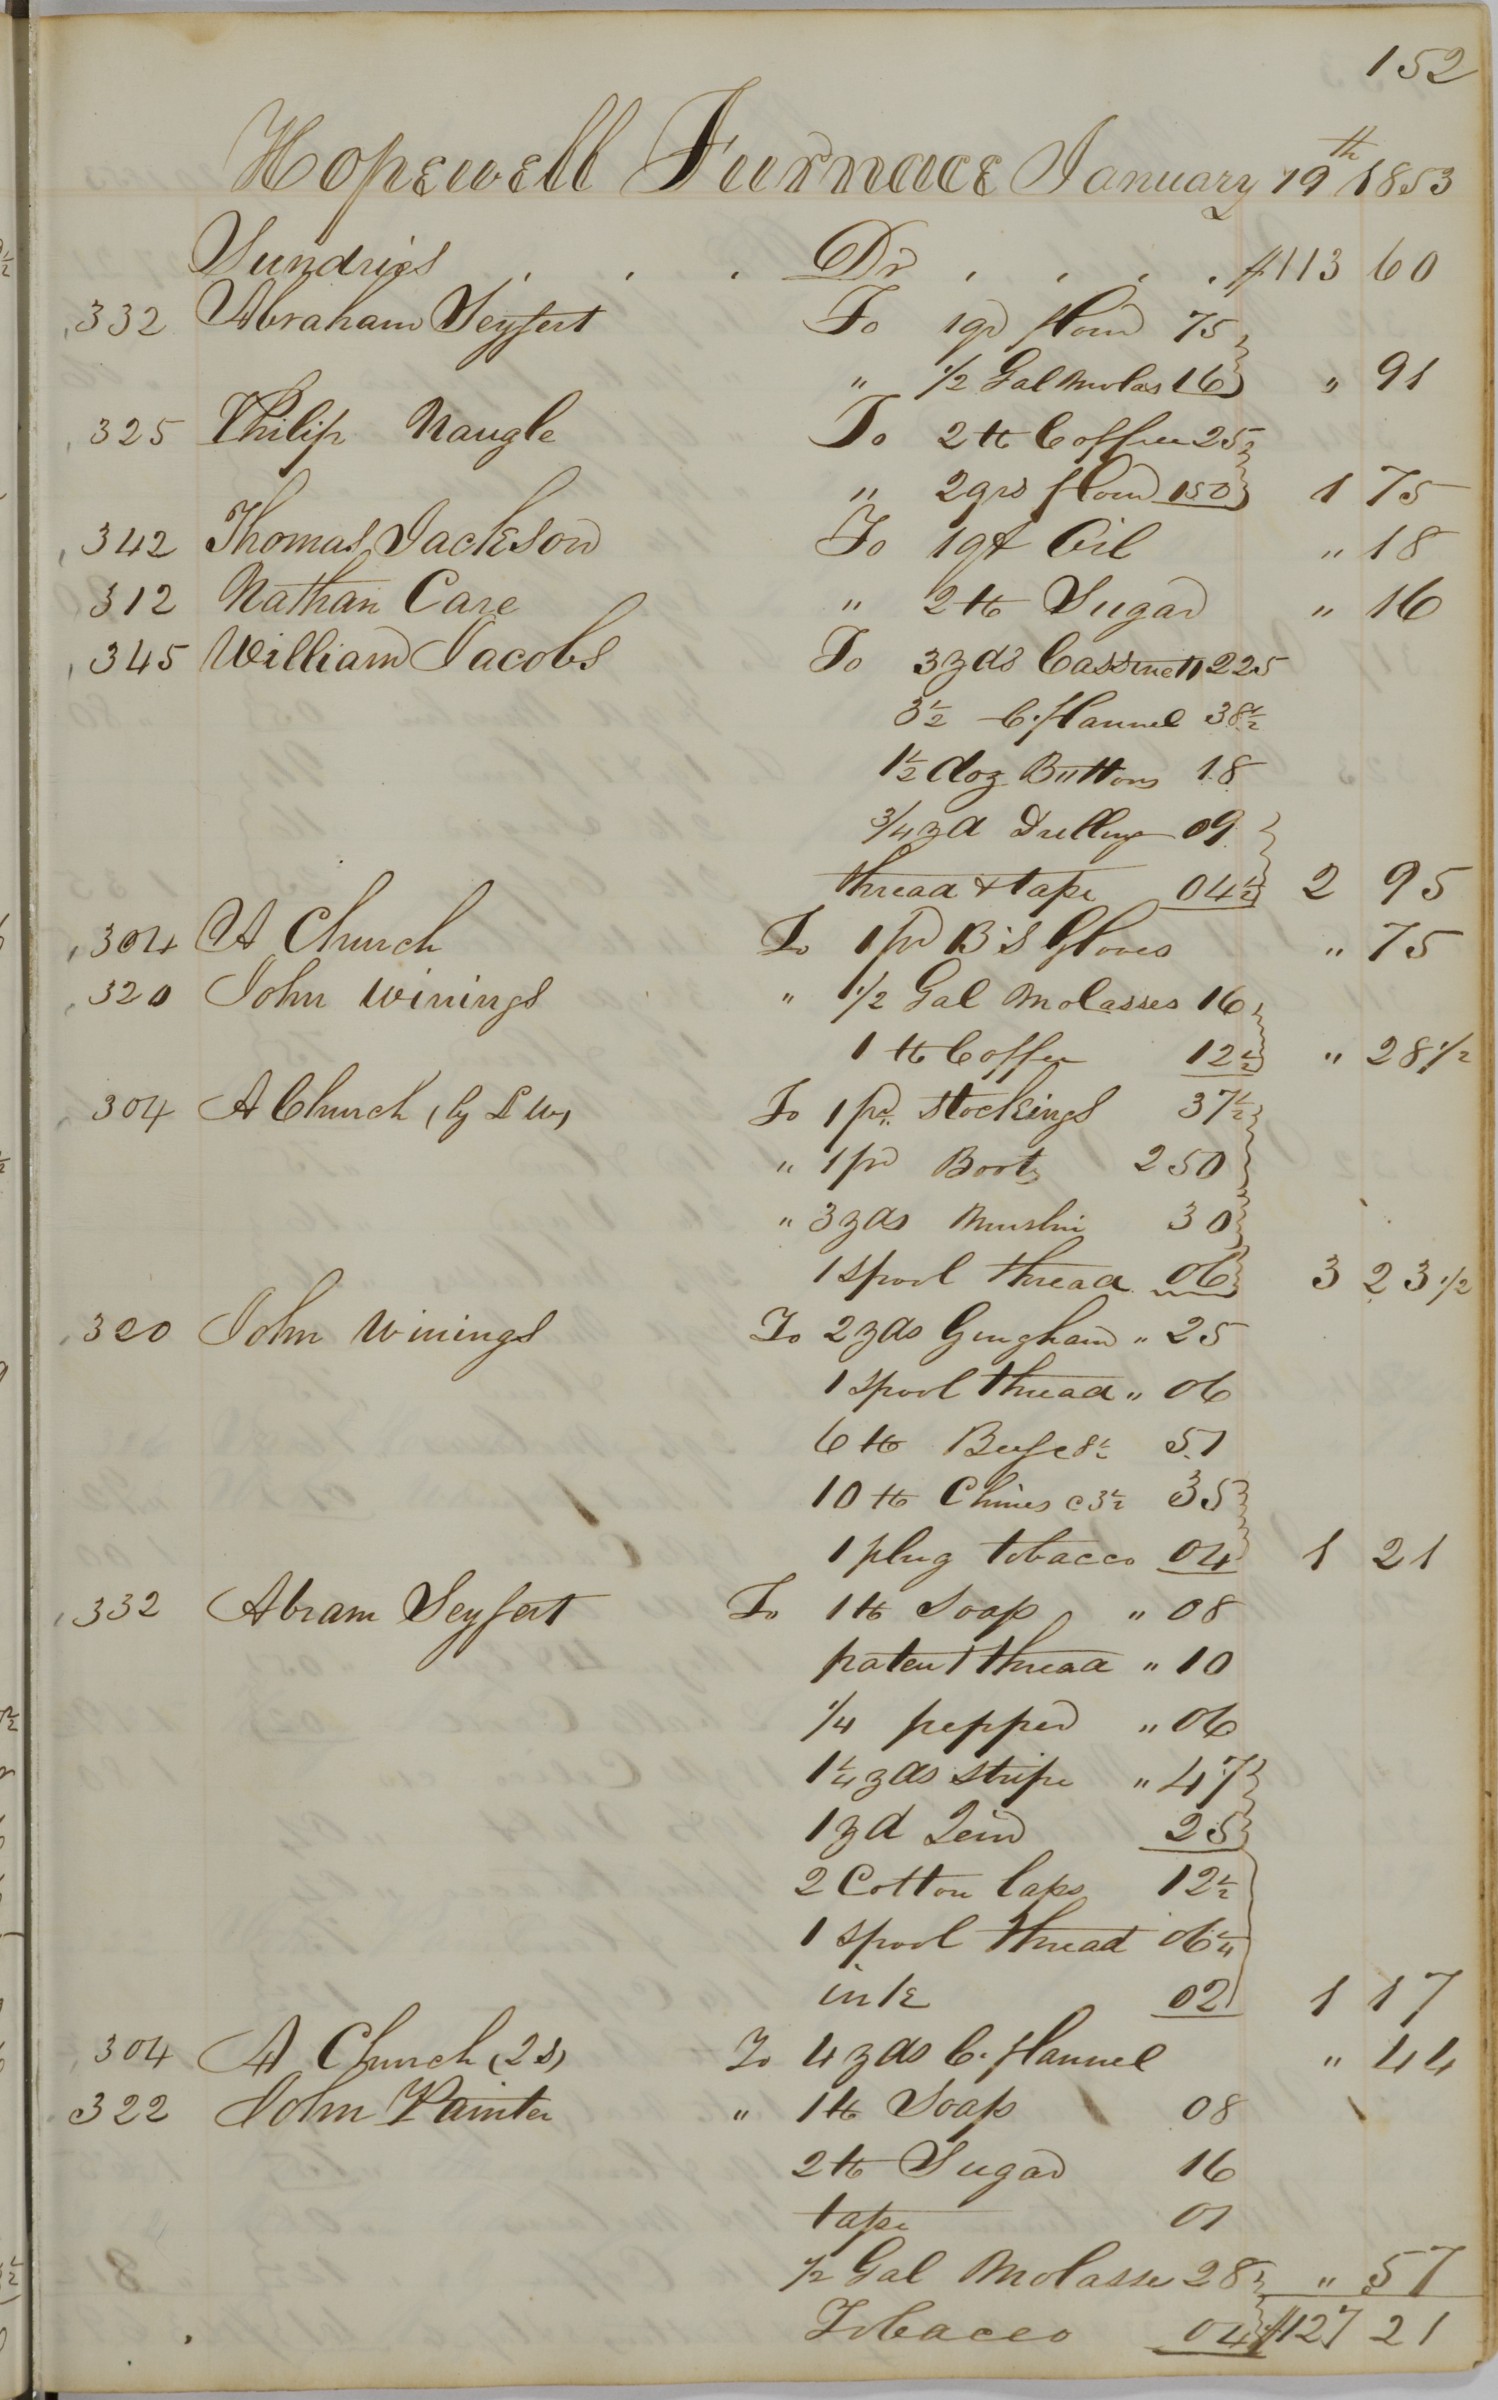 152
Hopewell Furnace January 19th 1853
Sundries . . . Dr . . . . $113 60
332 Abraham Seyfert To 1qr flour 75
" 1/2 Gal Molas 16 " 91
325 Philip Naugle To 2 lb Coffee 25
" 2qrs flour 150 1 75
342 Thomas Jackson To 1qt Oil " 18
312 Nathan Care " 2 lb Sugar " 16
345 William Jacobs To 3yds Cassinett 225
3 1/2 C. flannel 38 1/2
1 1/2 doz Buttons 18
3/4 yd Drilling 09
thread & tape 04 1/2 2 95
304 A Church To 1 pr B.S Gloves " 75
320 John Winings " 1/2 Gal Molasses 16
1 lb Coffee 12 1/2 " 28 1/2
304 A Church (by L W) To 1 pr. Stockings 37 1/2
" 1 pr Boots 250
" 3 yds Muslin 30
1 spool thread 06 3 23 1/2
320 John Winings To 2 yds Gingham " 25
1 spool thread " 06
6 lb Beef c 8 1/2 51
10 lb Chines c 3 1/2 35
1 plug tobacco 04 1 21
332 Abram Seyfert To 1 lb Soap " 08
patent thread " 10
1/4 pepper " 06
1 1/4 yds stripe " 47
1 yd Jein 25
2 Cotton Caps 12 1/2
1 spool thread 06 1/4
ink 02 1 17
304 A Church (2 S) To 4 yds C. flannel " 44
322 John Painter " 1 lb Soap 08
2 lb Sugar 16
tape 01
1/2 Gal Molasse 28 " 57
Tobacco 04 $127 21